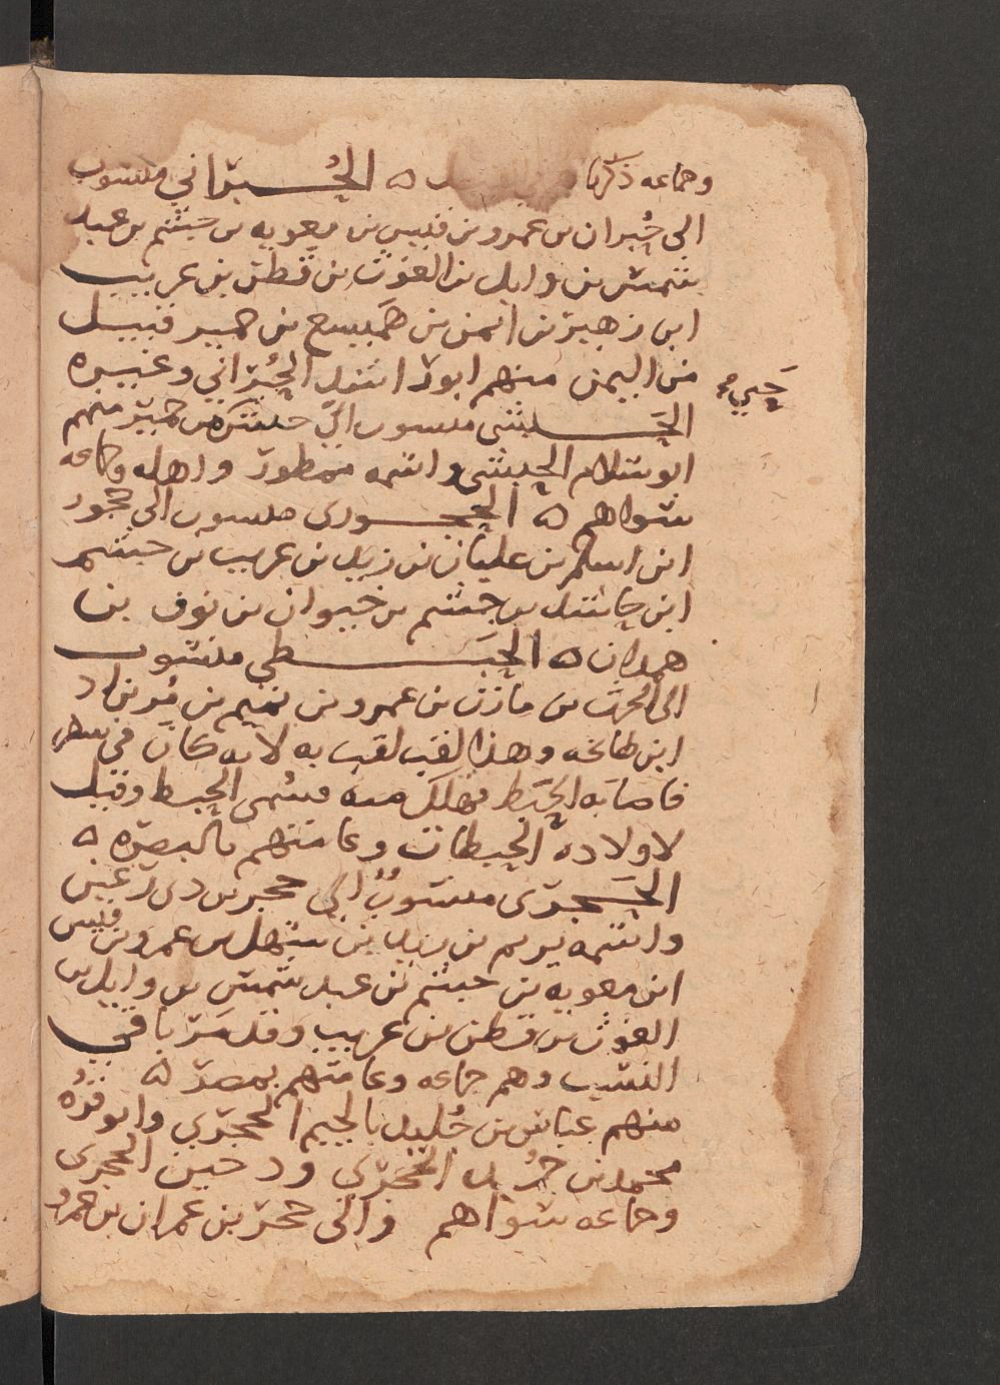 وجماعه ذكرنا ه الحُبراني منسوب
الى حُبران بن عمرو بن قيس بن معويه بن جشم بن عبد
شمس بن وايل بن الغوث بن قطن بن عريب
ابن زهير بن ايمن بن هَميسع بن حمير قبيل
من اليمن منهم ابو راشد الحُبراني وغيره
الحَبشي منسوب الى حبش من حمير منهم
ابو سلام الحبشي واسمه ممطور واهله وجماعه
سواهم ه الحجوري منسوب الى حجور
ابن اسلم بن عليان بن زيد بن عريب بن جشم
ابن حاشد بن جشم بن خيوان بن نوف بن
همدان ه الحبَطي منسوب
الى الحرث بن مازن بن عمرو بن تميم بن مُر بن اد
ابن طابخه وهذا لقب لقب به لانه كان في سفر
فاصابه الحَبَط فهلك منه فسُمى الحبط وقيل
لاولاده الحبطات وعامتهم بالبصره ه
الحَجري منسوبٌ الى حجر بن ذي رعين
واسمه يريم بن زيد بن سهل بن عمرو بن قيس
ابن معويه بن جشم بن عبد شمس بن وايل بن
الغوث بن قطن بن عريب وقد مَر باقي
النسب وهم جماعه وعامتهم بمصر ه
منهم عباس بن جُليد بالجيم الحجري وابو قره
محمد بن حُميد الحجري ودخين الحجري
وجماعه سواهم والى حجر بن عمران بن عمرو